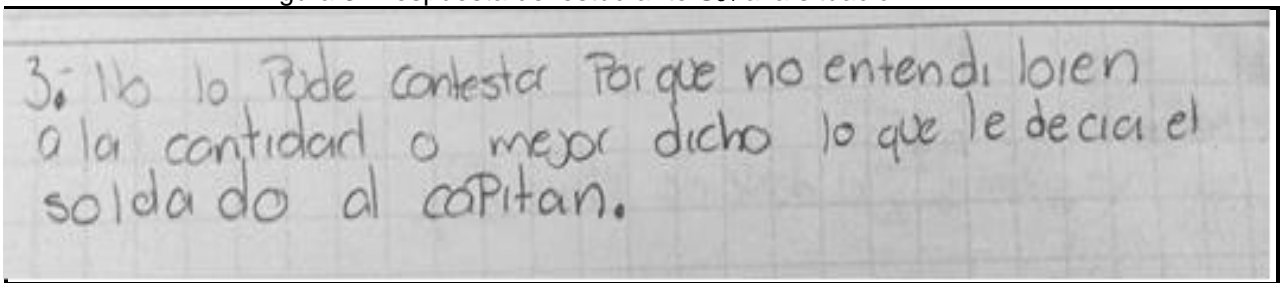 3: No lo Pude contestar Porque no entendi bien
a la cantidad o mejor dicho lo que le decia el
soldado al capitan.